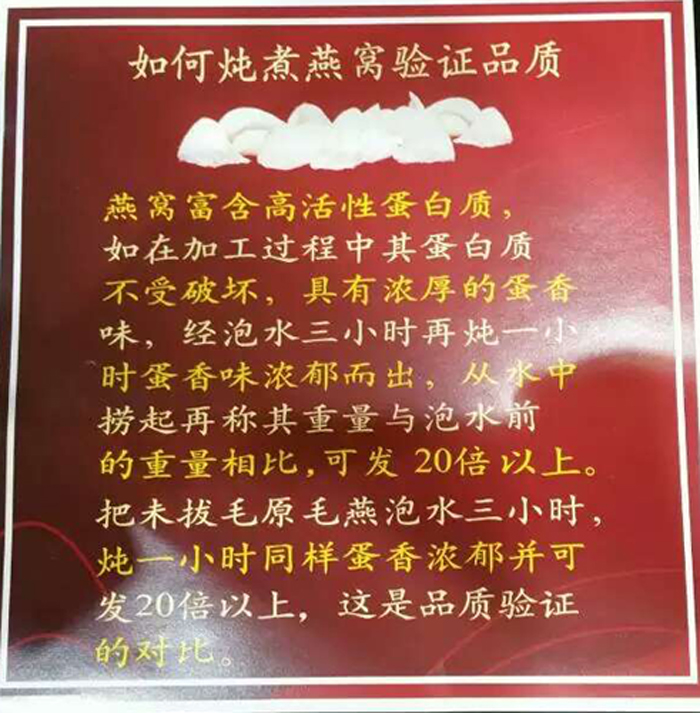 如何炖煮燕窝验证品质
燕窝富含高活性蛋白质，
如在加工过程中其蛋白质
不受破坏，具有浓厚的蛋香
味，经泡水三小时再炖一小
时蛋香味浓郁而出，从水中
捞起再称其重量与泡水前
的重量相比,可发 20倍以上。
把未拔毛原毛燕泡水三小时，
炖一小时同样蛋香浓郁并可
发20倍以上，这是品质验证
的对比。